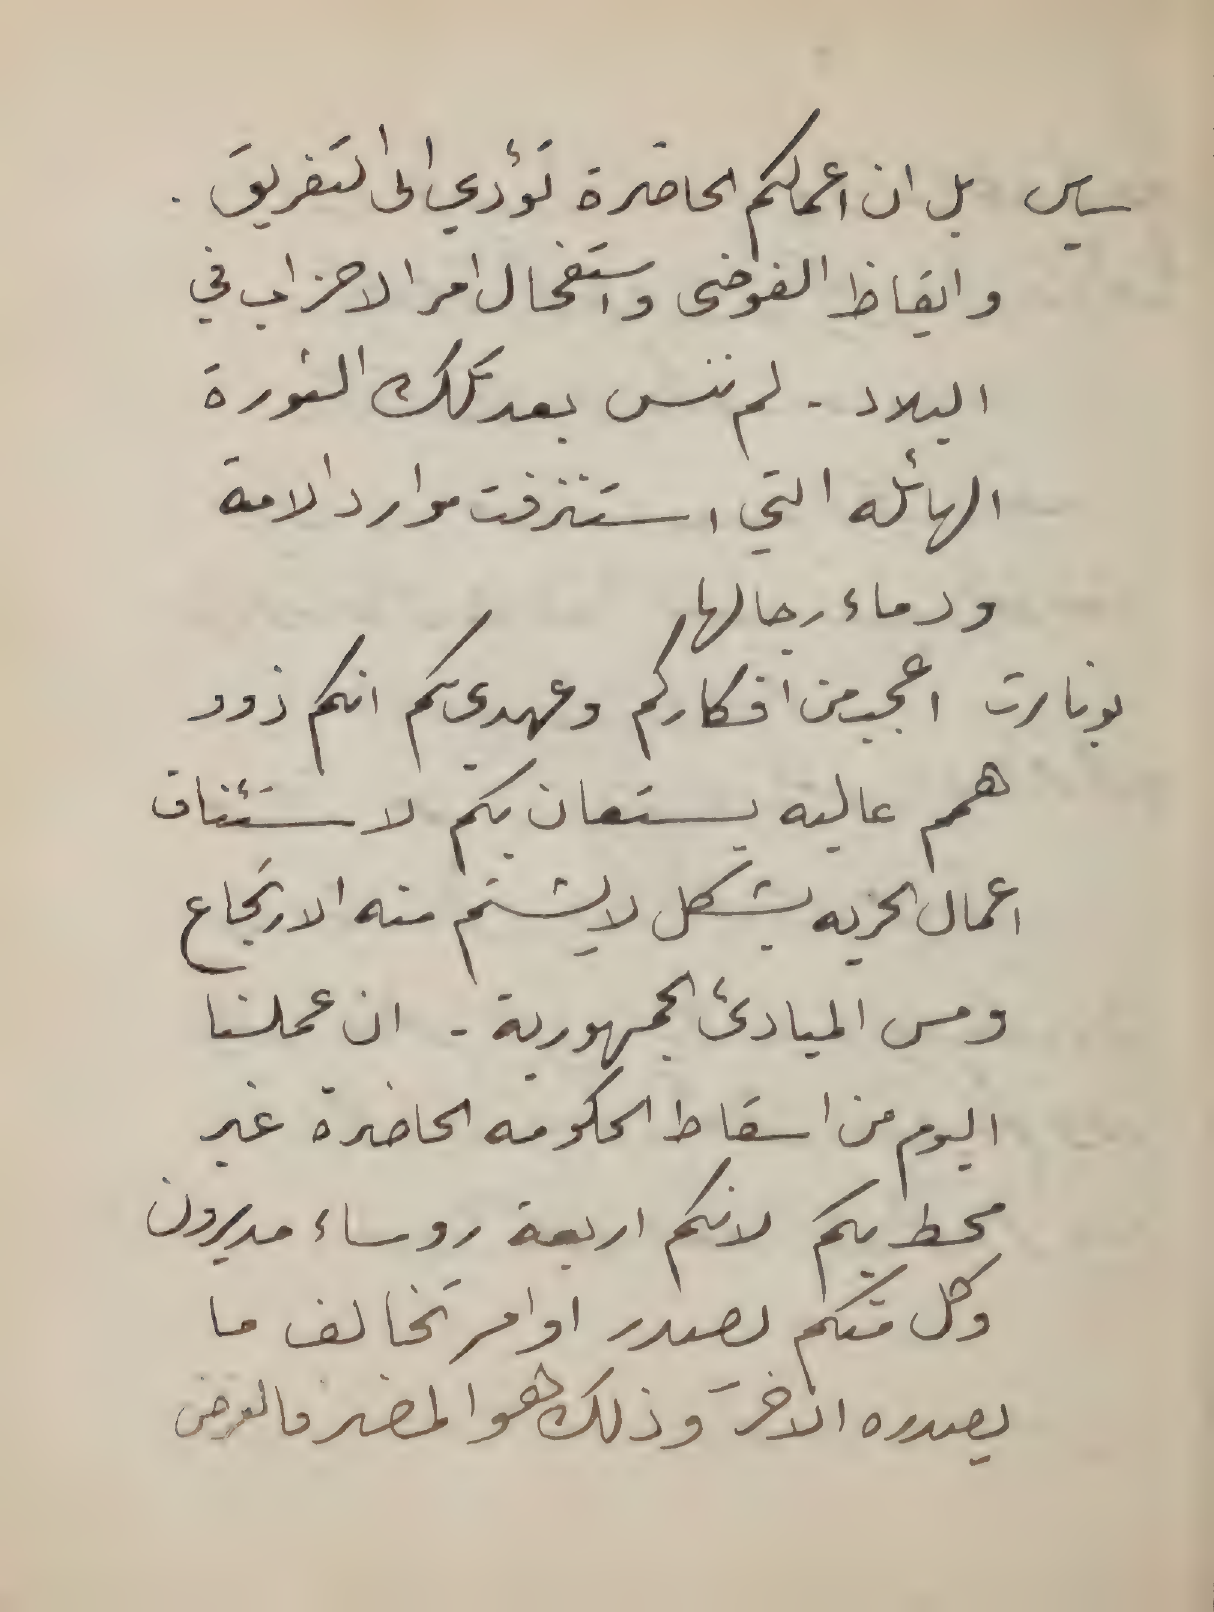 سياس بل ان اعمالكم الحاضرة تؤدي الى التفريق .
وايقاظ الفوضى واستفحال امر الاحزاب في
البلاد - لم ننس بعد تلك الثورة
الهائله التي استنزفت موارد الامة
ودماء رجالها
بونابرت اعجب من افكاركم وعهدي بكم انكم ذوو
همم عاليه يستعان بكم لاستئناف
اعمال الحزبه بشكل لا يشتم منه الارتجاع
ومس المبادئ الجمهورية - ان عملنا
اليوم من اسقاط الحكومه الحاضرة غير
محط بكم لانكم اربعة روساء مديرون
وكل منكم يصدر اوامر تخالف ما
يصدره الاخر وذلك هو المضر